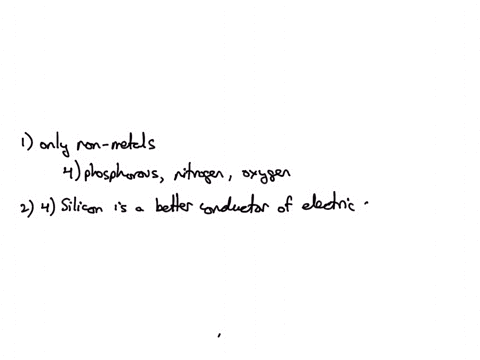 1) only non-metals
4) phosphorous, nitrogen, oxygen
2) 4) Silicon is a better conductor of electric.